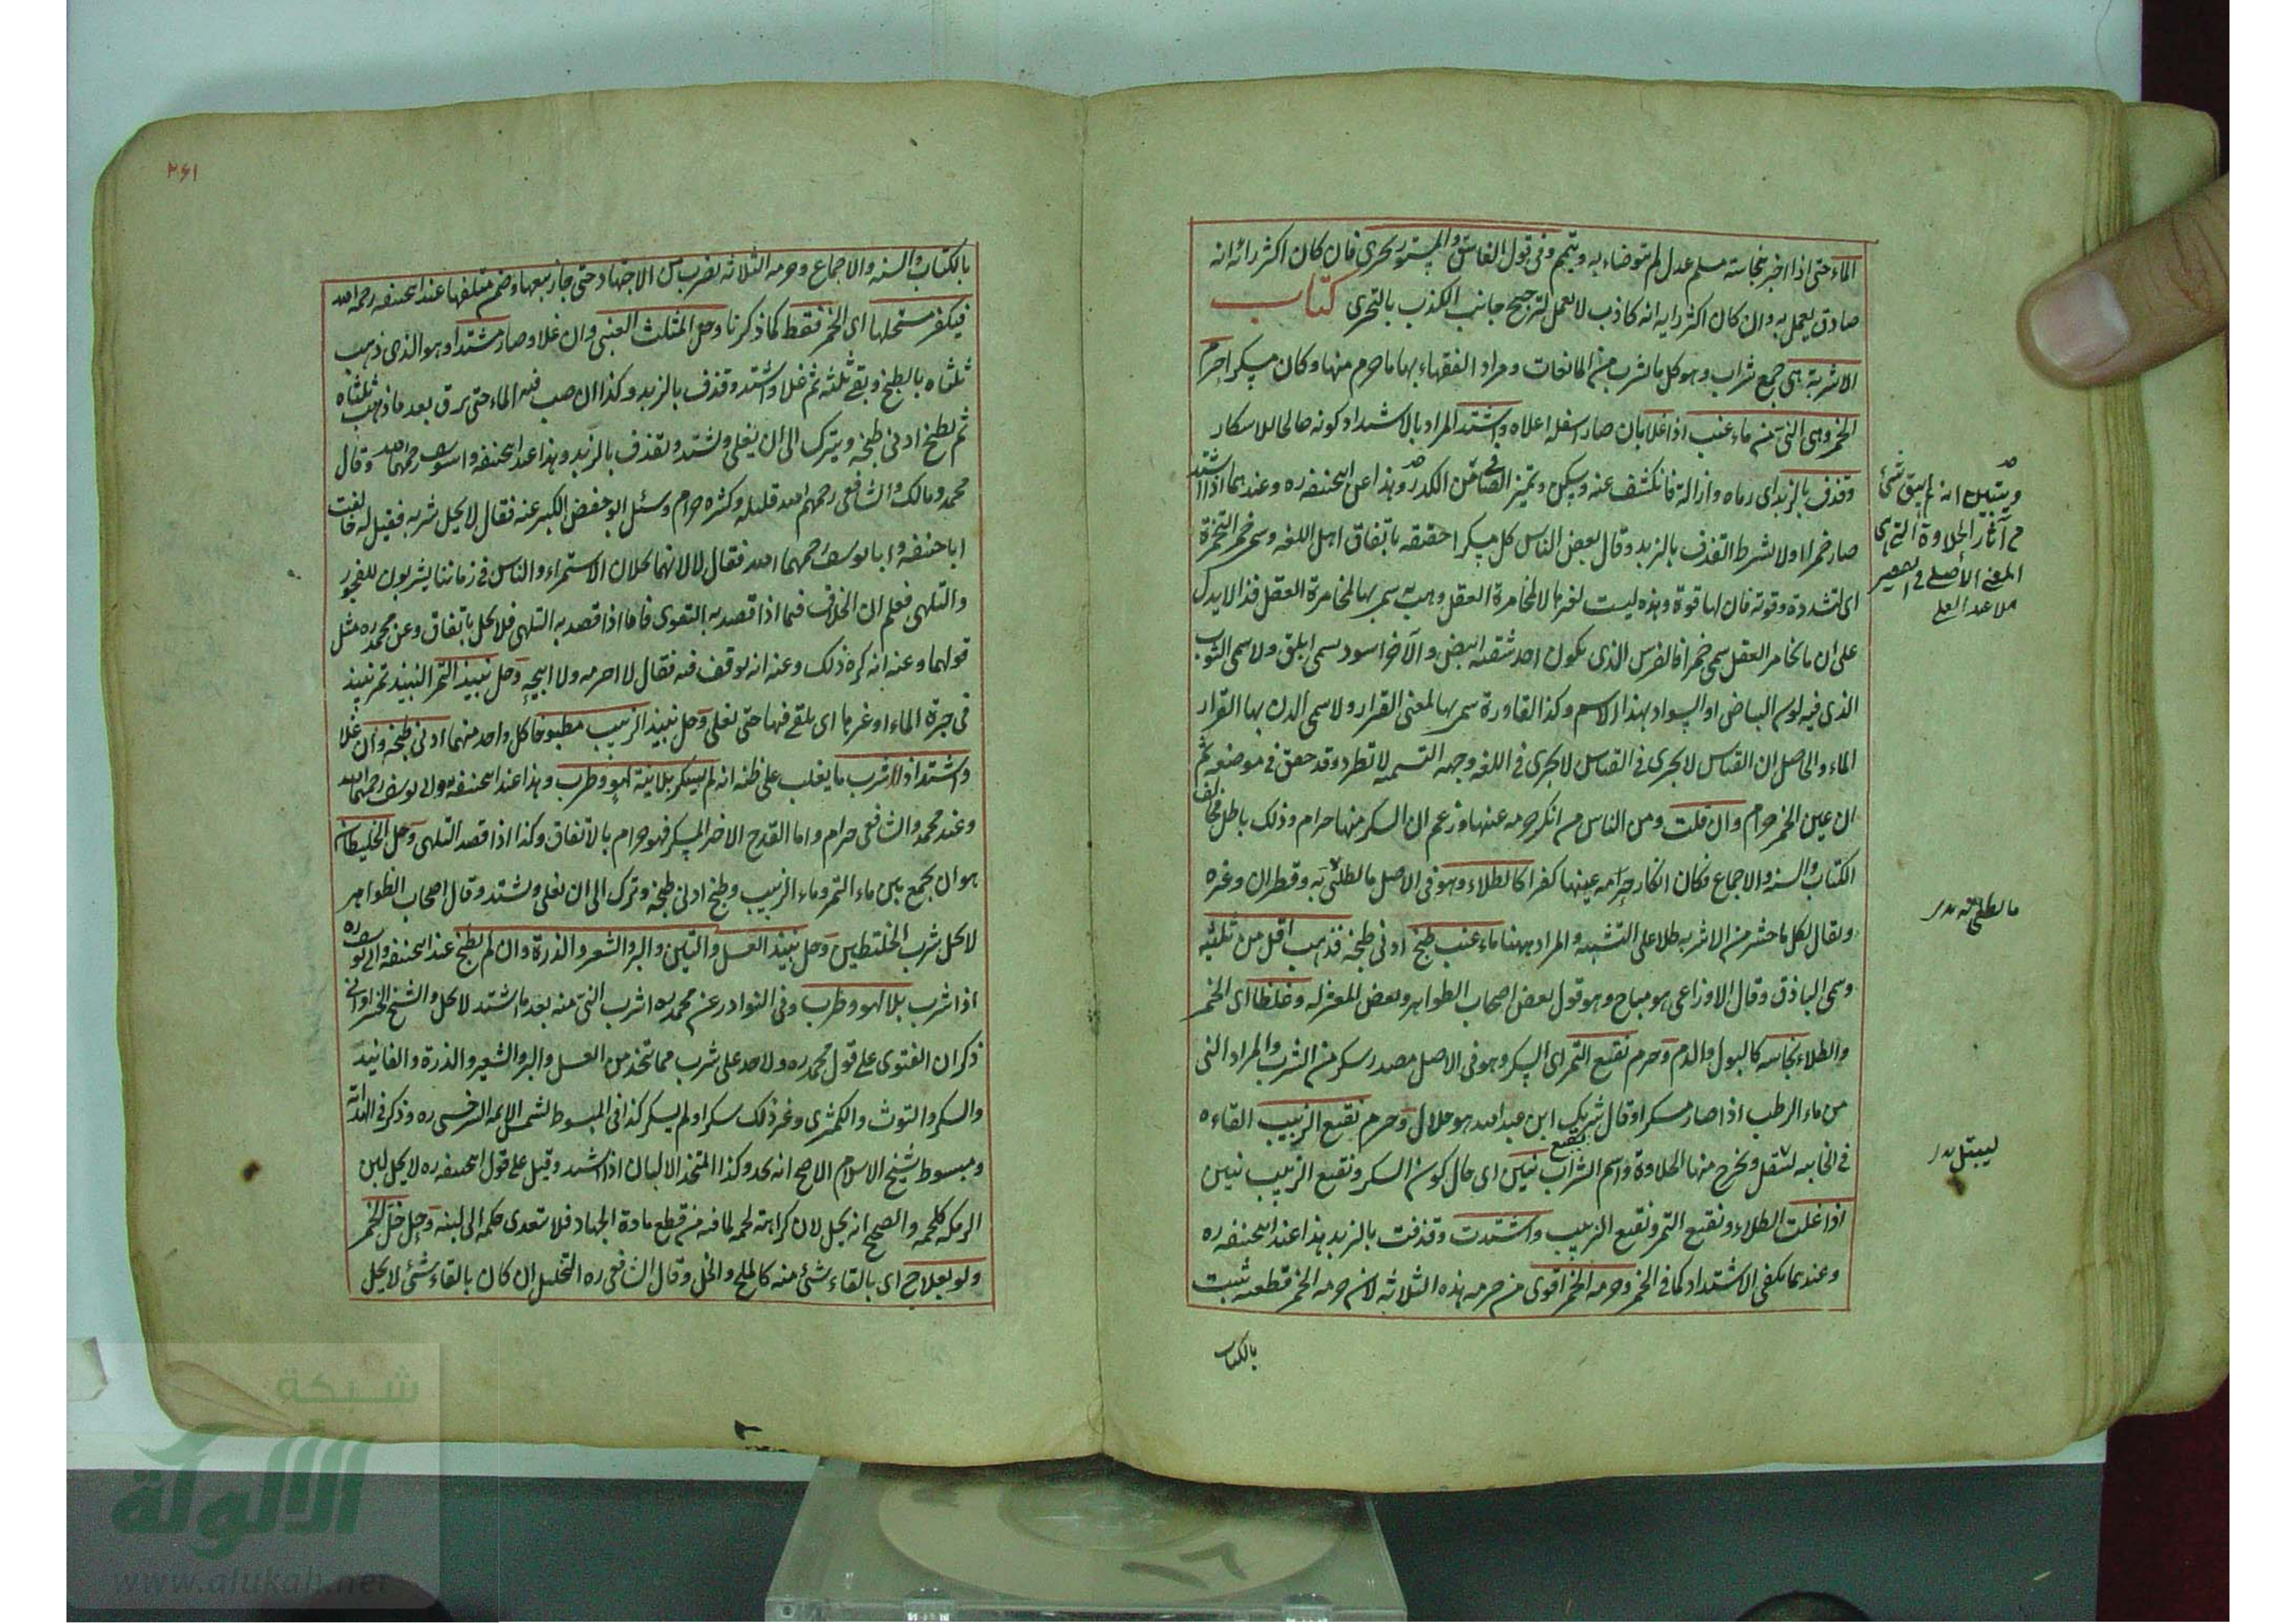 الماء حتى اذا اخبر بنجاسته مسلم عدل لم يتوضاء به ويتيمم وفى قول الفاسق والمستور تحرى فان كان اكثر رائه انه
صادق يعمل به وان كان اكثر رايه انه كاذب لا يعمل لترجيح جانب الكذب بالتحرى كتاب
الاشربة هى جمع شراب وهو كل ما يشرب من المائعات ومراد الفقهاء بها ما حرم منها وكان مسكرا حرم
الخمر وهى النى من ماء عنب اذا غلا بان صار اسفله اعلاه واشتد المراد بالاشتداد كونه صالحا للاسكار
وقذف بالزبد اى رماه وازاله فانكشف عنه وسكن وتميز الصافى من الكدر وهذا عند ابيحنيفه ره وعندهما اذا اشتد
صار خمرا ولا يشترط القذف بالزبد وقال بعض الناس كل مسكر احقيقه باتفاق اهل اللغه وسمى خمر التخمرة
اى لتشدده وقوته فان لها قوة وهذه ليست لغيرها لا لمخامرة العقل وهب سمى بها لمخامرة العقل فذا لا يدل
على ان ما يخامر العقل سمى خمرا فالفرس الذى يكون احد شقيه ابيض والآخر اسود يسمى ابلق ولا يسمى الثوب
الذى فيه لون البياض او السواد بهذا الاسم وكذا القارورة سمى بها لمعنى القرار ولا يسمى الدن بها لقرار
الماء والحاصل ان القياس لا يجرى فى اللغه وجهة التسميه لا تطرد وقد حقق فى موضعه ثم
ان عين الخمر حرام وان قلت ومن الناس من انكر حرمه عنها وزعم ان السكر منها حرام وذلك باطل مخالف
الكتاب والسنه والاجماع فكان انكار حرمه عينها كفرا كالطلاء وهو فى الاصل ما يطلى به وقطران وغيره
ويقال لكل ما خثر من الاشربه طلا على التشبيه والمراد ههنا ماء عنب طبخ ادنى طبخه فذهب اقل من ثلثيه
وسمى الباذق وقال الاوزاعى هو مباح وهو قول بعض اصحاب الظواهر وبعض المعتزله وغلظا اى الخمر
والطلاء نجاسه كالبول والدم وحرم نقيع التمر اى السكر وهو فى الاصل مصدر سكر من الشراب والمراد النى
من ماء الرطب اذا صار مسكرا وقال شريك ابن عبد الله هو حلال وحرم نقيع الزبيب القاءه
فى الخابيه ويخرج منها الحلاوة واسم الشراب نقيع نيين اى حال كون السكر ونقيع الزبيب نيين
اذا غلت الطلاء ونقيع التمر ونقيع الزبيب واشتدت وقذفت بالزبد هذا عند ابيحنيفه ره
وعندهما يكفى الاشتداد كما فى الخمر وحرمه الخمر اقوى من حرمه هذه الثلاثه لان حرمه الخمر قطعيه ثبت
بالكتاب
ويتبين انه لم يبق شئ
من آثار الحلاوة التى هى
المعنى الأصلى فى العصير
ما يطلى به
ليبتل
٢٦١
بالكتاب والسنه والاجماع وحرمه الثلاثه بضرب من الاجتهاد حتى جاز بيعها وضمن متلفها عند ابيحنيفه رحمه الله
فيكفر مستحلها اى الخمر فقط كما ذكرنا وحل المثلث العنبى وان غلا وصار مشتدا وهو الذى ذهب
ثلثاه بالطبخ وبقى ثلثه ثم غلا واشتد وقذف بالزبد وكذا ان صب فيه الماء حتى يرق بعد ما ذهب ثلثاه
ثم يطبخ ادنى طبخه ويترك الى ان يغلى ويشتد ويقذف بالزبد وهذا عند ابيحنيفه وابيوسف رحمهما الله وقال
محمد ومالك والشافعى رحمهم الله قليله وكثيره حرام وسئل ابو حفص الكبير عنه فقال لا يحل شربه فقيل له خالفت
ابا حنيفه وابا يوسف رحمهما الله فقال لا لانهما يحلان الاستمراء والناس فى زماننا يشربون للفجور
والتلهى فعلم ان الخلاف فيما اذا قصد به التقوى فاما اذا قصد به التلهى فلا يحل باتفاق وعن محمد ره مثل
قولهما وعنه انه كره ذلك وعنه انه توقف فيه فقال لا احرمه ولا ابيحه وحل نبيذ التمر النبيذ تمر ينبذ
فى جرة الماء او غيرها اى يلقى فيها حتى يغلى وحل نبيذ الزبيب مطبوخا كل واحد منهما ادنى طبخه وان غلا
واشتد اذا شرب ما يغلب على ظنه انه لم يسكر بلا نية لهو وطرب وهذا عند ابيحنيفه وابى يوسف رحمهما الله
وعند محمد والشافعى حرام واما القدح الاخير المسكر فهو حرام بالاتفاق وكذا اذا قصد التلهى وحل الخليطان
هو ان يجمع بين ماء التمر وماء الزبيب ويطبخ ادنى طبخه ويترك الى ان يغلى ويشتد وقال اصحاب الظواهر
لا يحل شرب الخليطين وحل نبيذ العسل والتين والبر والشعير والذرة وان لم يطبخ عند ابيحنيفه وابى يوسف ره
اذا شرب بلا لهو وطرب وفى النوادر عن محمد ره شرب النى منه بعد ما اشتد لا يحل والشيخ
ذكر ان الفتوى على قول محمد ره ولا حد على شرب مما يتخذ من العسل والبر والشعير والذرة والفانيد
والسكر والتوث والكمثرى وغير ذلك سكر او لم يسكر كذا فى المبسوط لشمس الايمه السرخسى ره وذكر فى الهدايه
ومبسوط شيخ الاسلام الاصح انه يحد وكذا المتخذ الالبان اذا اشتد وقيل على قول ابيحنيفه ره لا يحل لبن
الرمكه كلحمه والصحيح انه يحل لان كراهته لحمه لما فيه من قطع مادة الجهاد فلا يتعدى حكمه الى لبنه وحل خل الخمر
ولو بعلاج اى بالقاء شئ منه كالملح والخل وقال الشافعى ره التخليل ان كان بالقاء شئ لا يحل
شبكة
الألوكة
www.alukah.net